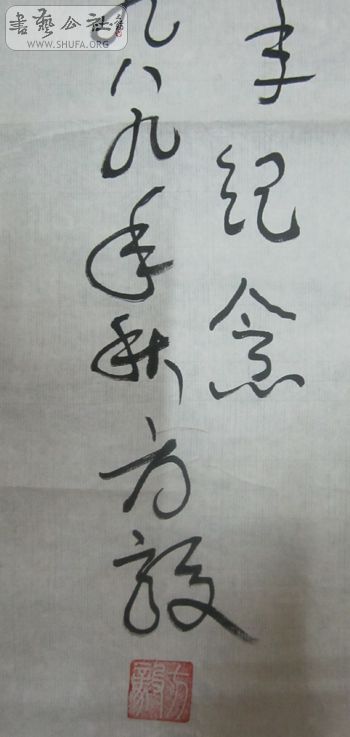 書藝公社
WWW.SHUFA.ORG
年纪念
九八九年秋方毅
方毅